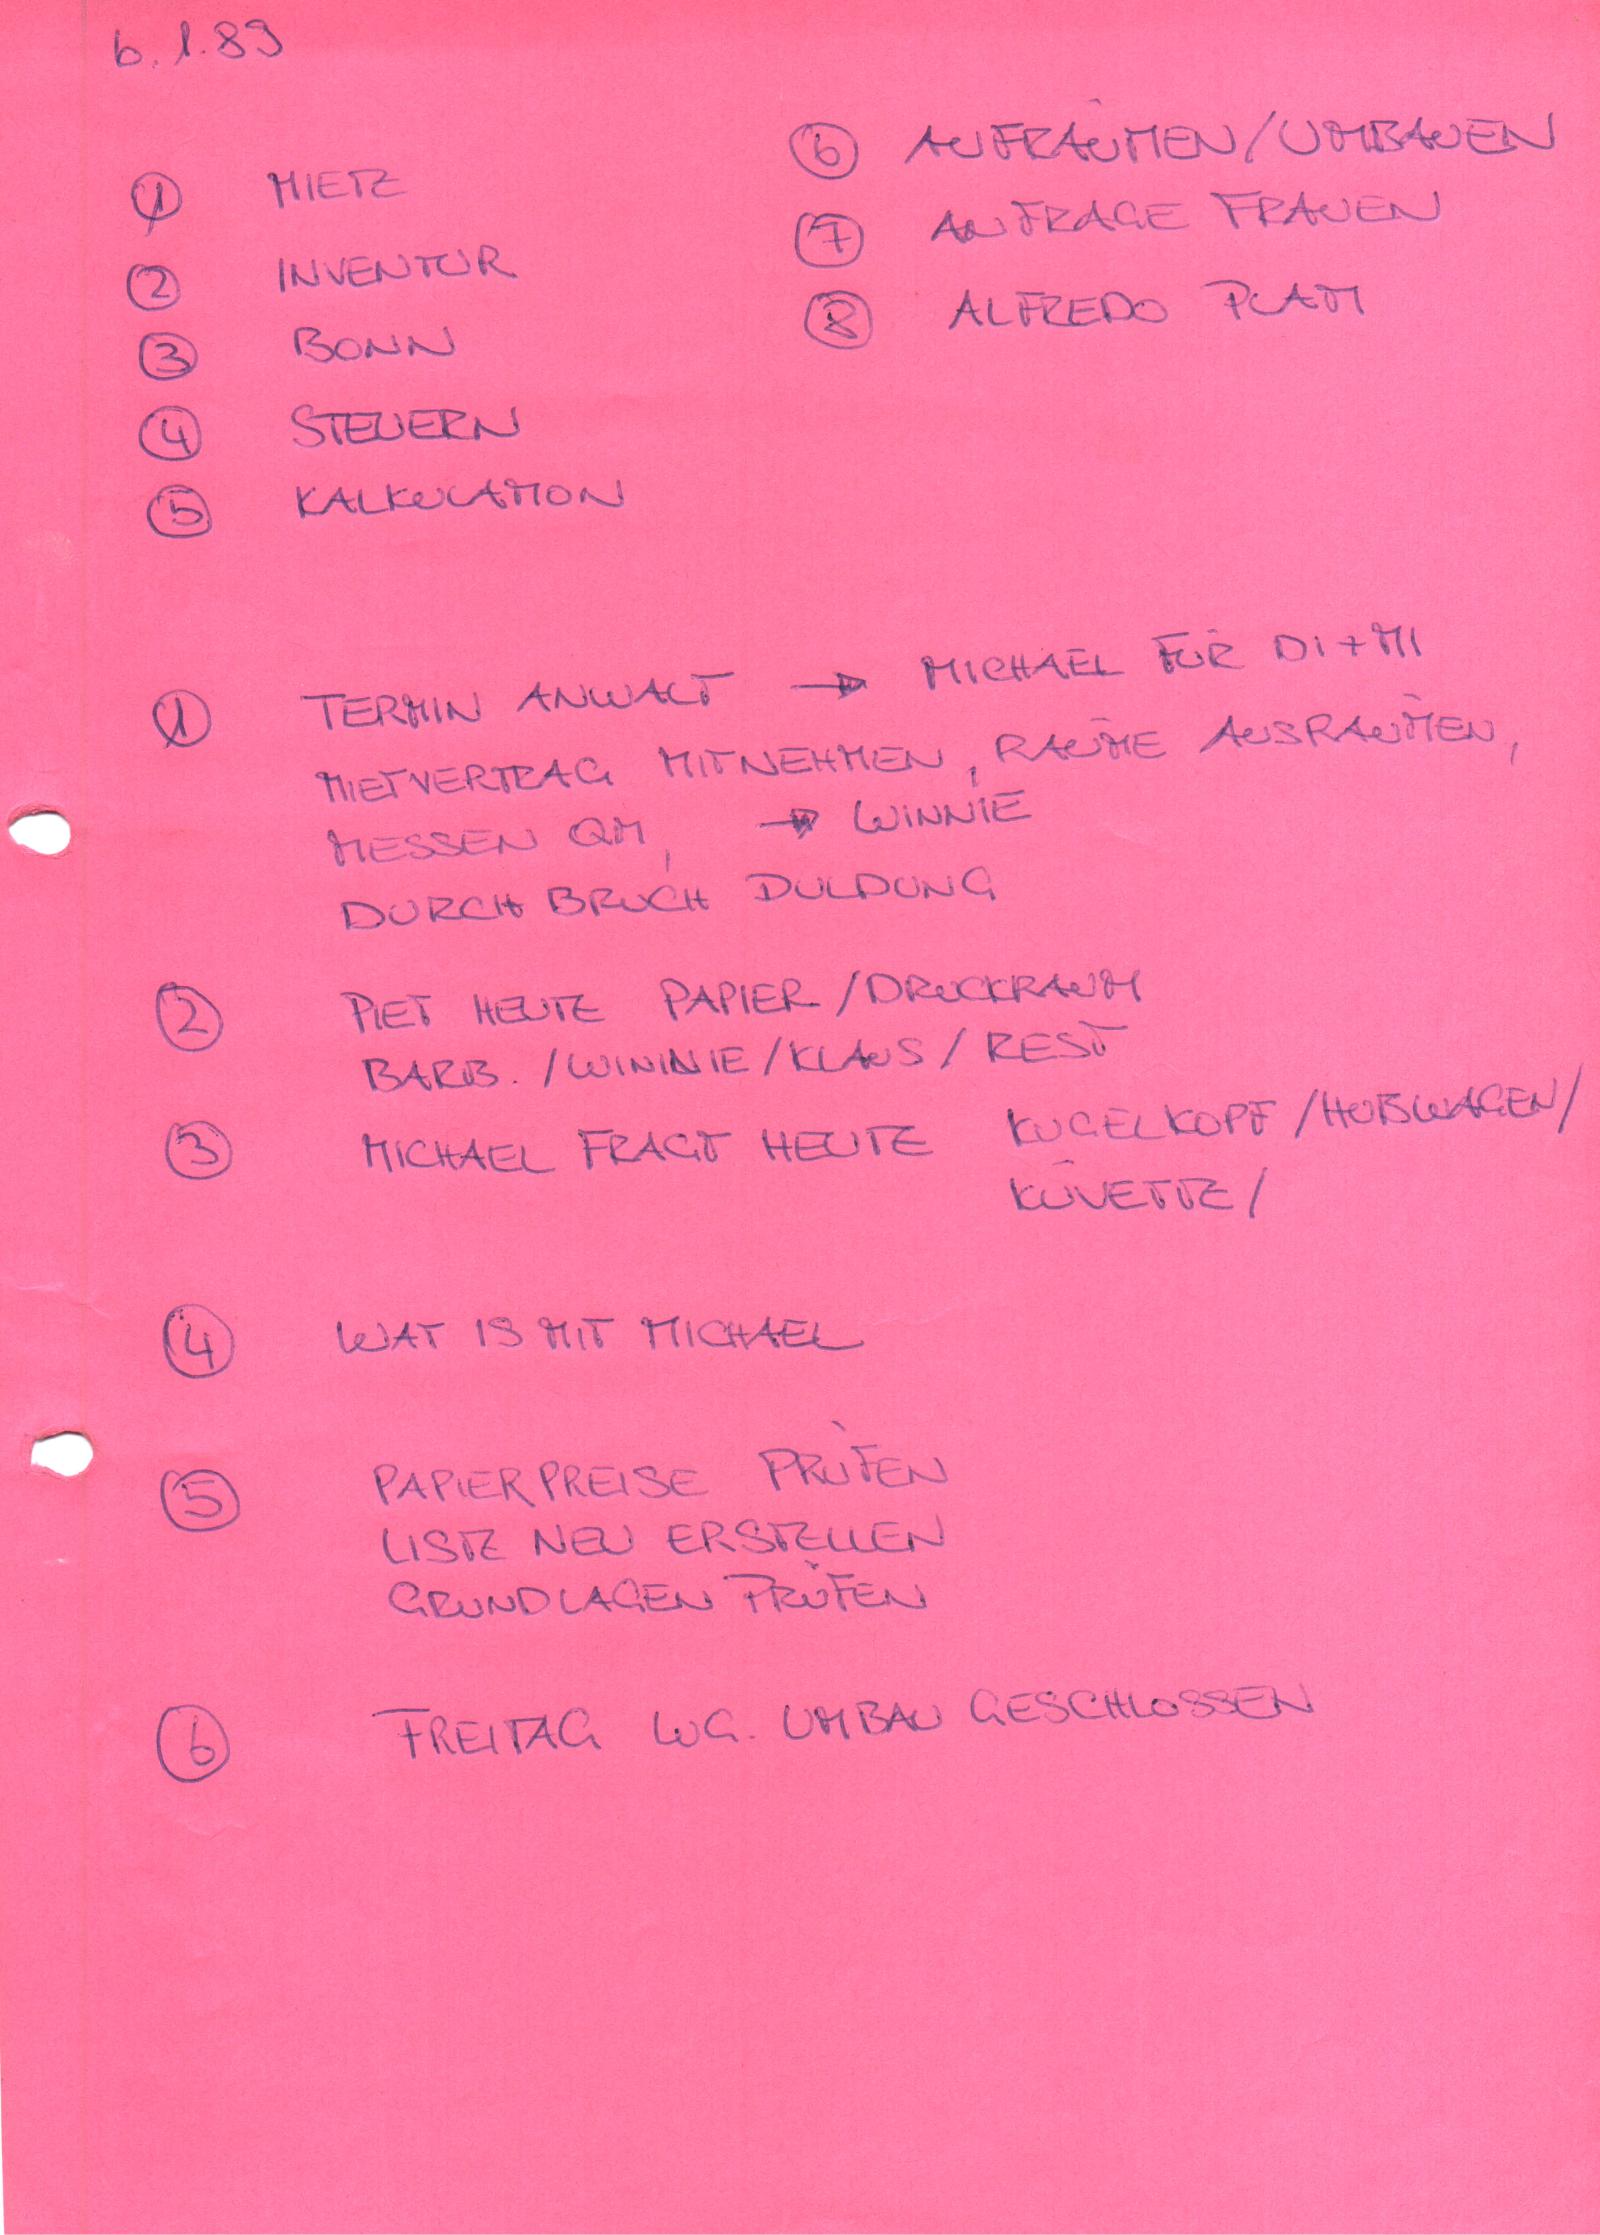 6.1.89
① MIETE
② INVENTUR
③ BONN
④ STEUERN
⑤ KALKULATION
⑥ AUFRÄUMEN/UMBAUEN
⑦ ANFRAGE FRAUEN
⑧ ALFREDO PLATT
① TERMIN ANWALT → MICHAEL FÜR DI + MI
MIETVERTRAG MITNEHMEN, RÄUME AUSRÄUMEN,
MESSEN QM, → WINNIE
DURCHBRUCH DULDUNG
② PIET HEUTE PAPIER/DRUCKRAUM
BARB./WINNIE/KLAUS/REST
③ MICHAEL FRAGT HEUTE KUGELKOPF/HUBWAGEN/
KÜVETTE/
④ WAT IS MIT MICHAEL
⑤ PAPIERPREISE PRÜFEN
LISTE NEU ERSTELLEN
GRUNDLAGEN PRÜFEN
⑥ FREITAG WG. UMBAU GESCHLOSSEN